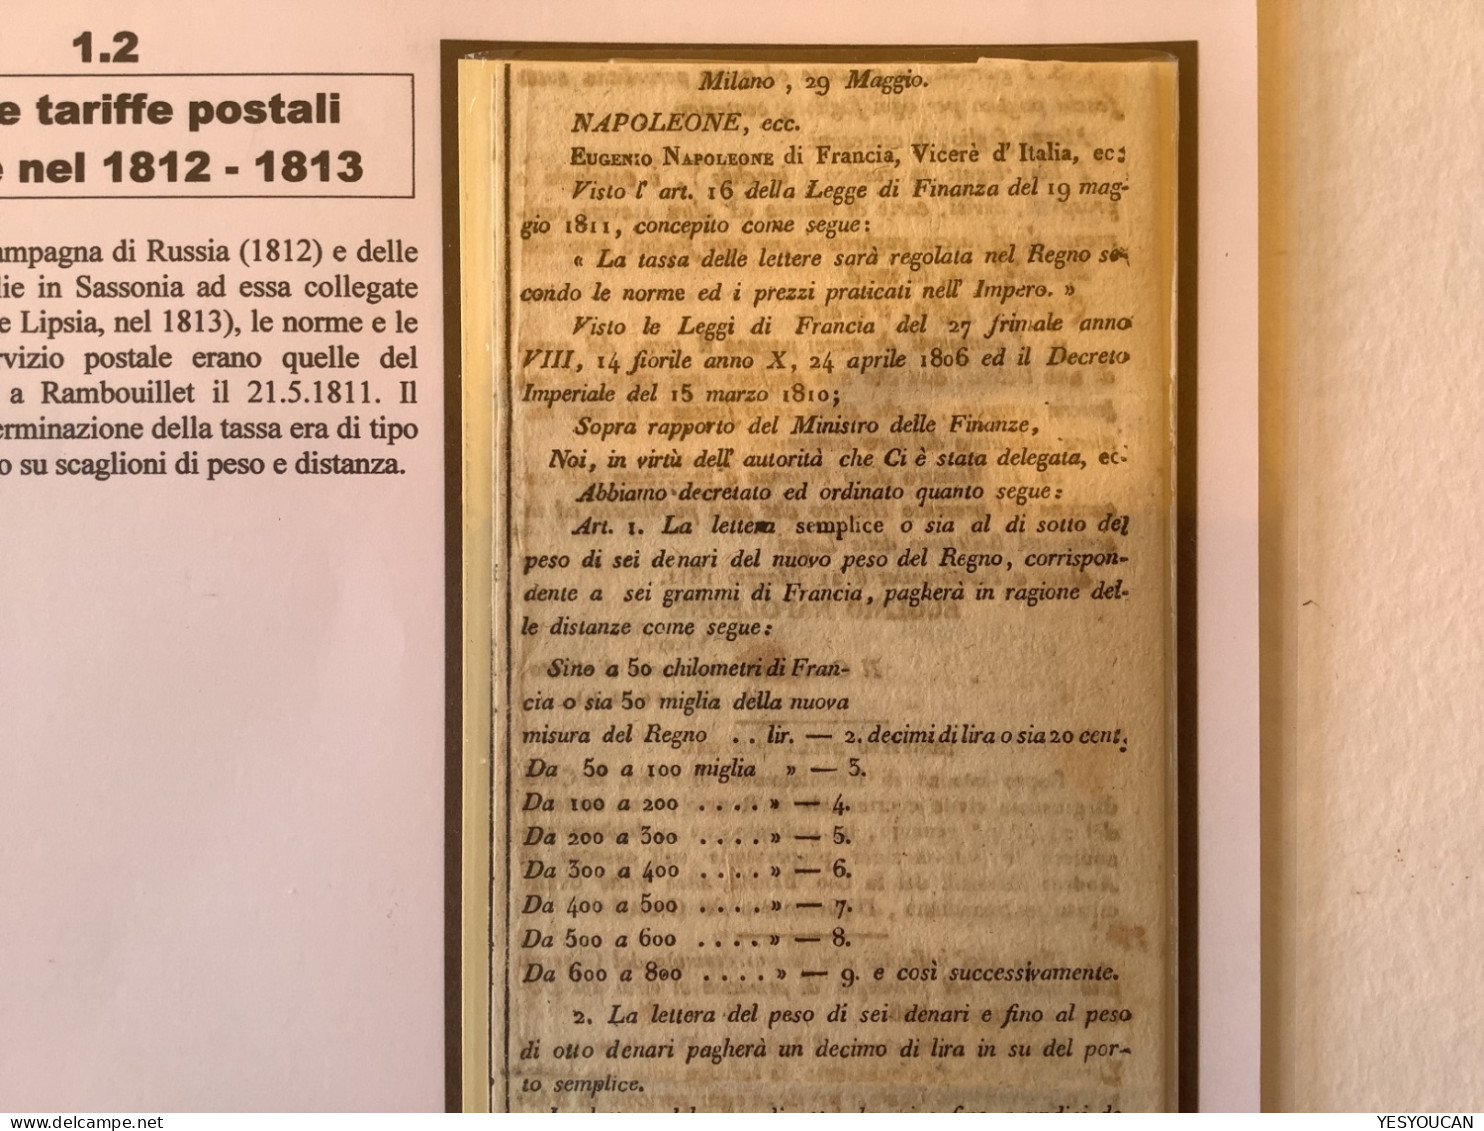 1.2
e tariffe postali
e nel 1812 - 1813
ampagna di Russia (1812) e delle
lie in Sassonia ad essa collegate
e Lipsia, nel 1813), le norme e le
rvizio postale erano quelle del
a Rambouillet il 21.5.1811. Il
erminazione della tassa era di tipo
o su scaglioni di peso e distanza.
Milano , 29 Maggio.
NAPOLEONE, ecc.
EUGENIO NAPOLEONE di Francia, Vicerè d' Italia, ec:
Visto l' art. 16 della Legge di Finanza del 19 mag-
gio 1811, concepito come segue:
« La tassa delle lettere sarà regolata nel Regno se-
condo le norme ed i prezzi praticati nell' Impero. »
Visto le Leggi di Francia del 27 frimale anno
VIII, 14 fiorile anno X, 24 aprile 1806 ed il Decreto
Imperiale del 15 marzo 1810;
Sopra rapporto del Ministro delle Finanze,
Noi, in virtù dell' autorità che Ci è stata delegata, ec.
Abbiamo decretato ed ordinato quanto segue:
Art. 1. La lettera semplice o sia al di sotto del
peso di sei denari del nuovo peso del Regno, corrispon-
dente a sei grammi di Francia, pagherà in ragione del-
le distanze come segue:
Sino a 50 chilometri di Fran-
cia o sia 50 miglia della nuova
misura del Regno . . lir. — 2. decimi di lira o sia 20 cent.
Da 50 a 100 miglia » — 3.
Da 100 a 200 . . . . » — 4.
Da 200 a 300 . . . . » — 5.
Da 300 a 400 . . . . » — 6.
Da 400 a 500 . . . . » — 7.
Da 500 a 600 . . . . » — 8.
Da 600 a 800 . . . . » — 9. e così successivamente.
2. La lettera del peso di sei denari e fino al peso
di otto denari pagherà un decimo di lira in su del por-
to semplice.
YESYOUCAN